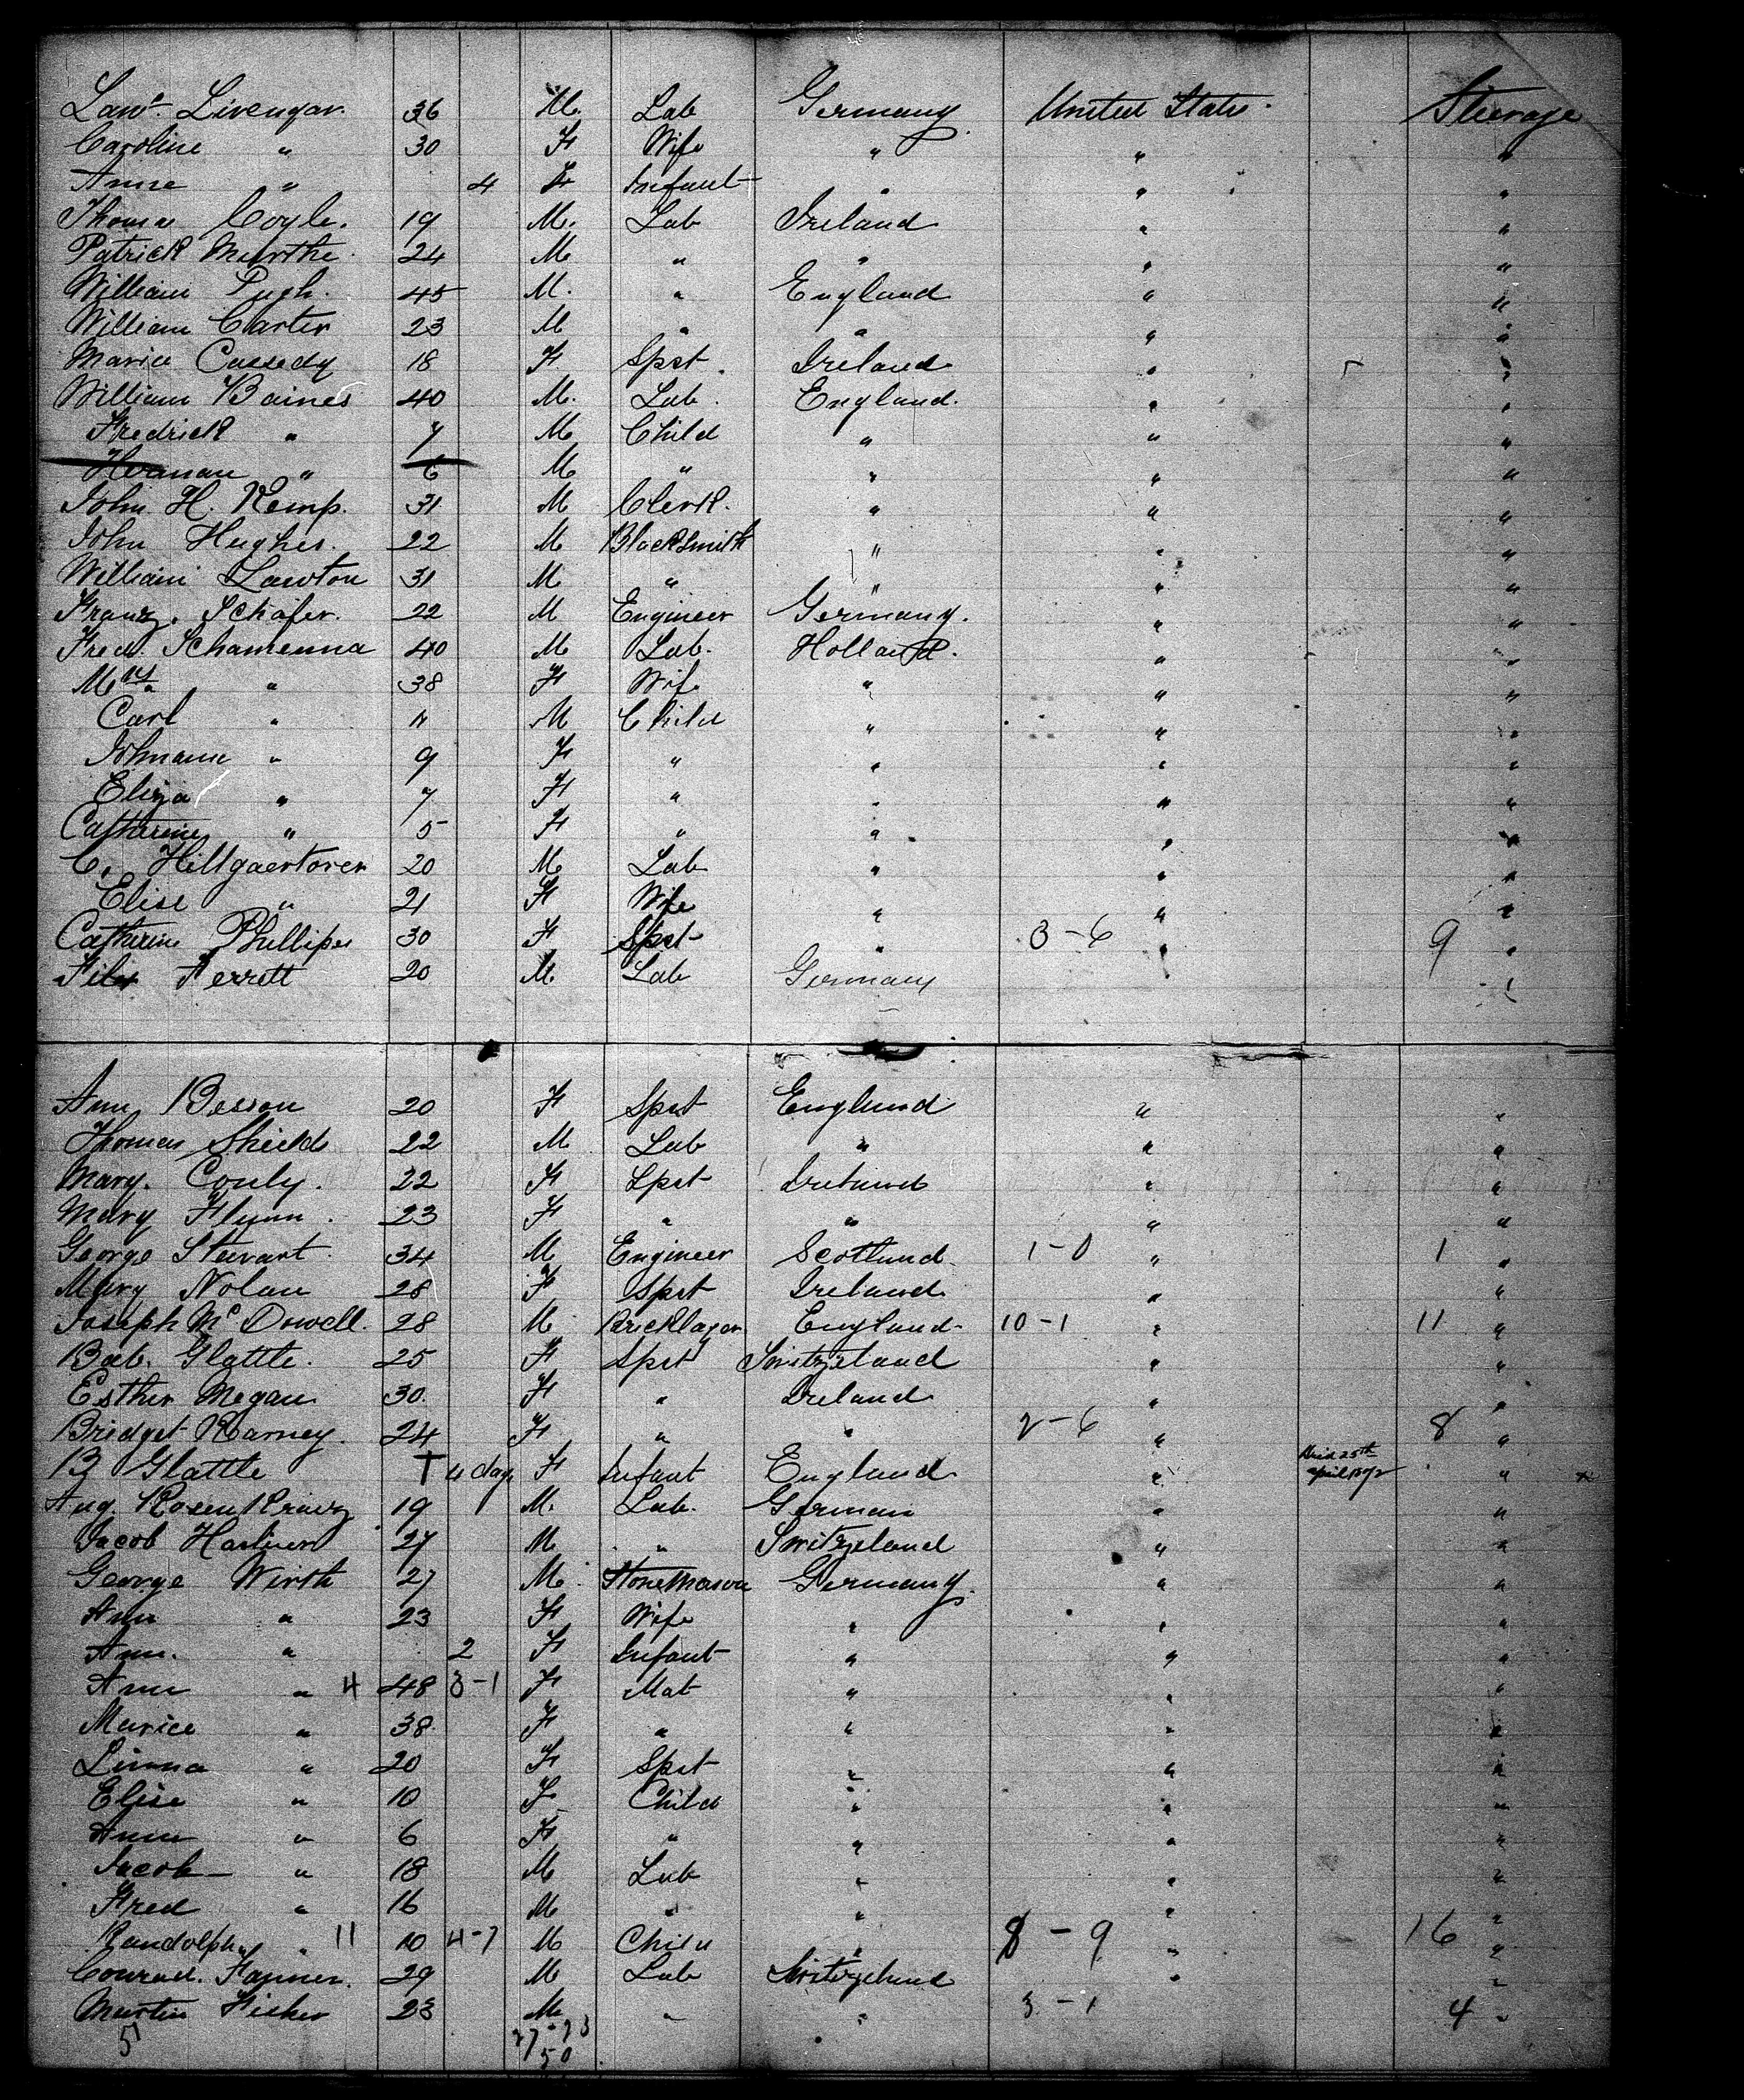 Lawr. Livengar. 36 M. Lab Germany United States. Steerage
Caroline " 30 F Wife " " "
Anne " 4 F Infant " " "
Thomas Coyle. 19 M. Lab Ireland " "
Patrick Murthe. 24 M " " " "
William Pugh. 45 M. " England " "
William Carter 23 M " " " "
Maria Cassedy 18 F. Spst. Ireland " "
William Baines 40 M. Lab. England. " "
Fredrick " 7 M Child " " "
" 6 M " " " "
John H. Kemp. 31 M Clerk. " " "
John Hughes. 22 M Blacksmith " " "
William Lawton 31 M " " " "
Franz. Schafer. 22 M Engineer Germany. " "
Fred. Schamenna 40 M Lab. Holland. " "
Mrs. " 38 F Wife " " "
Carl " 11 M Child " " "
Johnann " 9 F " " " "
Eliza " 7 F " " " "
Catherine " 5 F " " " "
C. Hillgaertover 20 M Lab " " "
Elise " 21 F Wife " " "
Catherine Phillipes 30 F Spst " 3-6 " 9 "
Ferrett 20 M. Lab Germany " "
Ann Besson 20 F Spst England " "
Thomas Shields 22 M Lab " " "
Mary. Conly. 22 F Spst Ireland " "
Mary Flynn. 23 F " " " "
George Stewart. 34 M Engineer Scotland 1-0 " 1 "
Mary Nolan 28 F Spst Ireland " "
Joseph McDowell. 28 M Bricklayer England 10-1 " 11 "
Bab. Glattle. 25 F Spst Switzeland " "
Esther Megan 30. F " Ireland " "
Bridget Karney. 24 F " " 2-6 " 8 "
B Glattle † 4 days F Infant England " Died 25th april 1872 "
Aug. Rosenkranz 19 M. Lab. German " "
Jacob 27 M " Switzeland " "
George Wirth 27 M. Stonemason Germany. " "
Ann " 23 F Wife " " "
Ann. " 2 F Infant " " "
Ann " 4 48 3-1 F Mat " " "
Marice " 38 F " " " "
Linna " 20 F Spst " " "
Elise " 10 F Child " " "
Anna " 6 F " " " "
Jacob " 18 M Lab " " "
Fred " 16 M " " " "
Randolph " 11 10 4-7 M Child " 8-9 " 16 "
Conrad. Fanner. 29 M Lab Switzeland " "
Martin Fisher 23 M " " 3-1 4 "
5 27-23
50